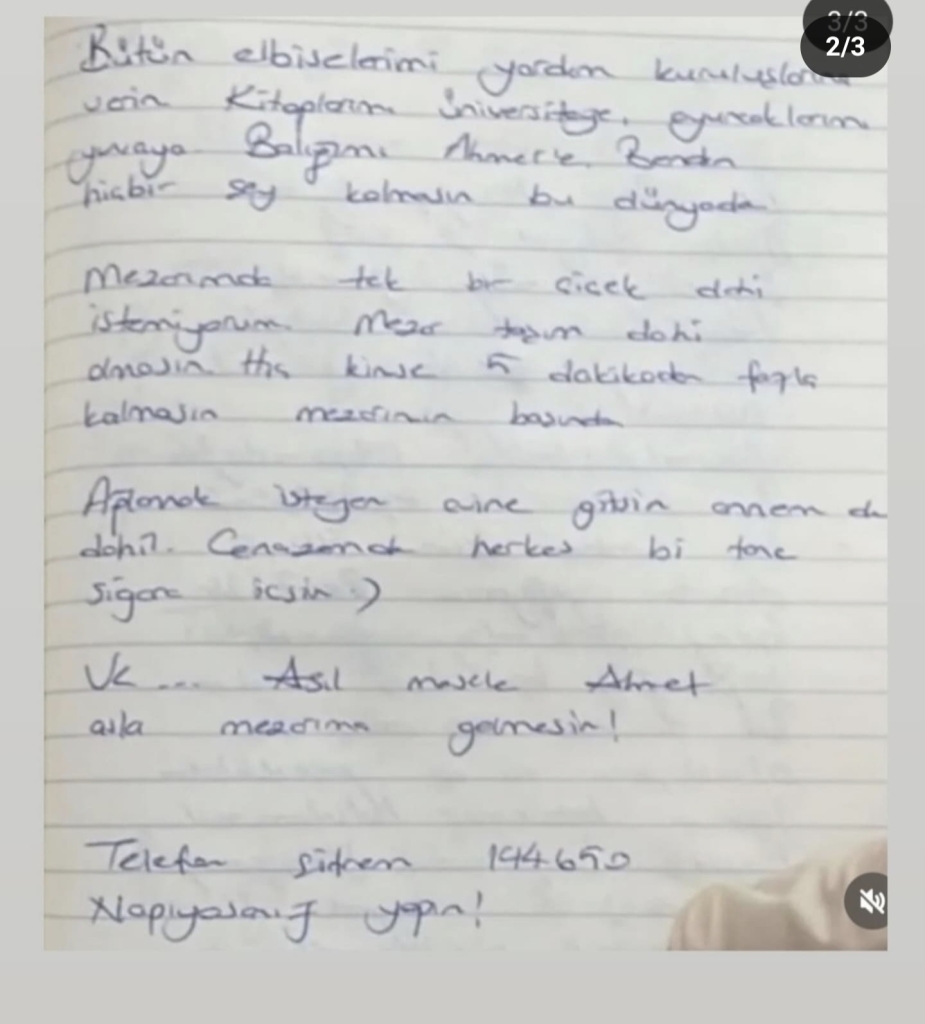 3/3
2/3
Bütün elbiselerimi yardım kuruluşlarına
verin Kitaplarım üniversiteye, oyuncaklarım
yuvaya Balığımı Ahmet'e. Benden
hiçbir şey kalmasın bu dünyada
Mezarımda tek bir çiçek dahi
istemiyorum. Mezar taşım dahi
olmasın. Hiç kimse 5 dakikadan fazla
kalmasın mezarımın başında
Ağlamak isteyen evine gitsin annem de
dahil. Cenazemde herkes bi tane
sigara içsin :)
Ve ... Asıl mesele Ahmet
asla mezarıma gelmesin!
Telefon şifrem 144650
Napıyosanız yapın!